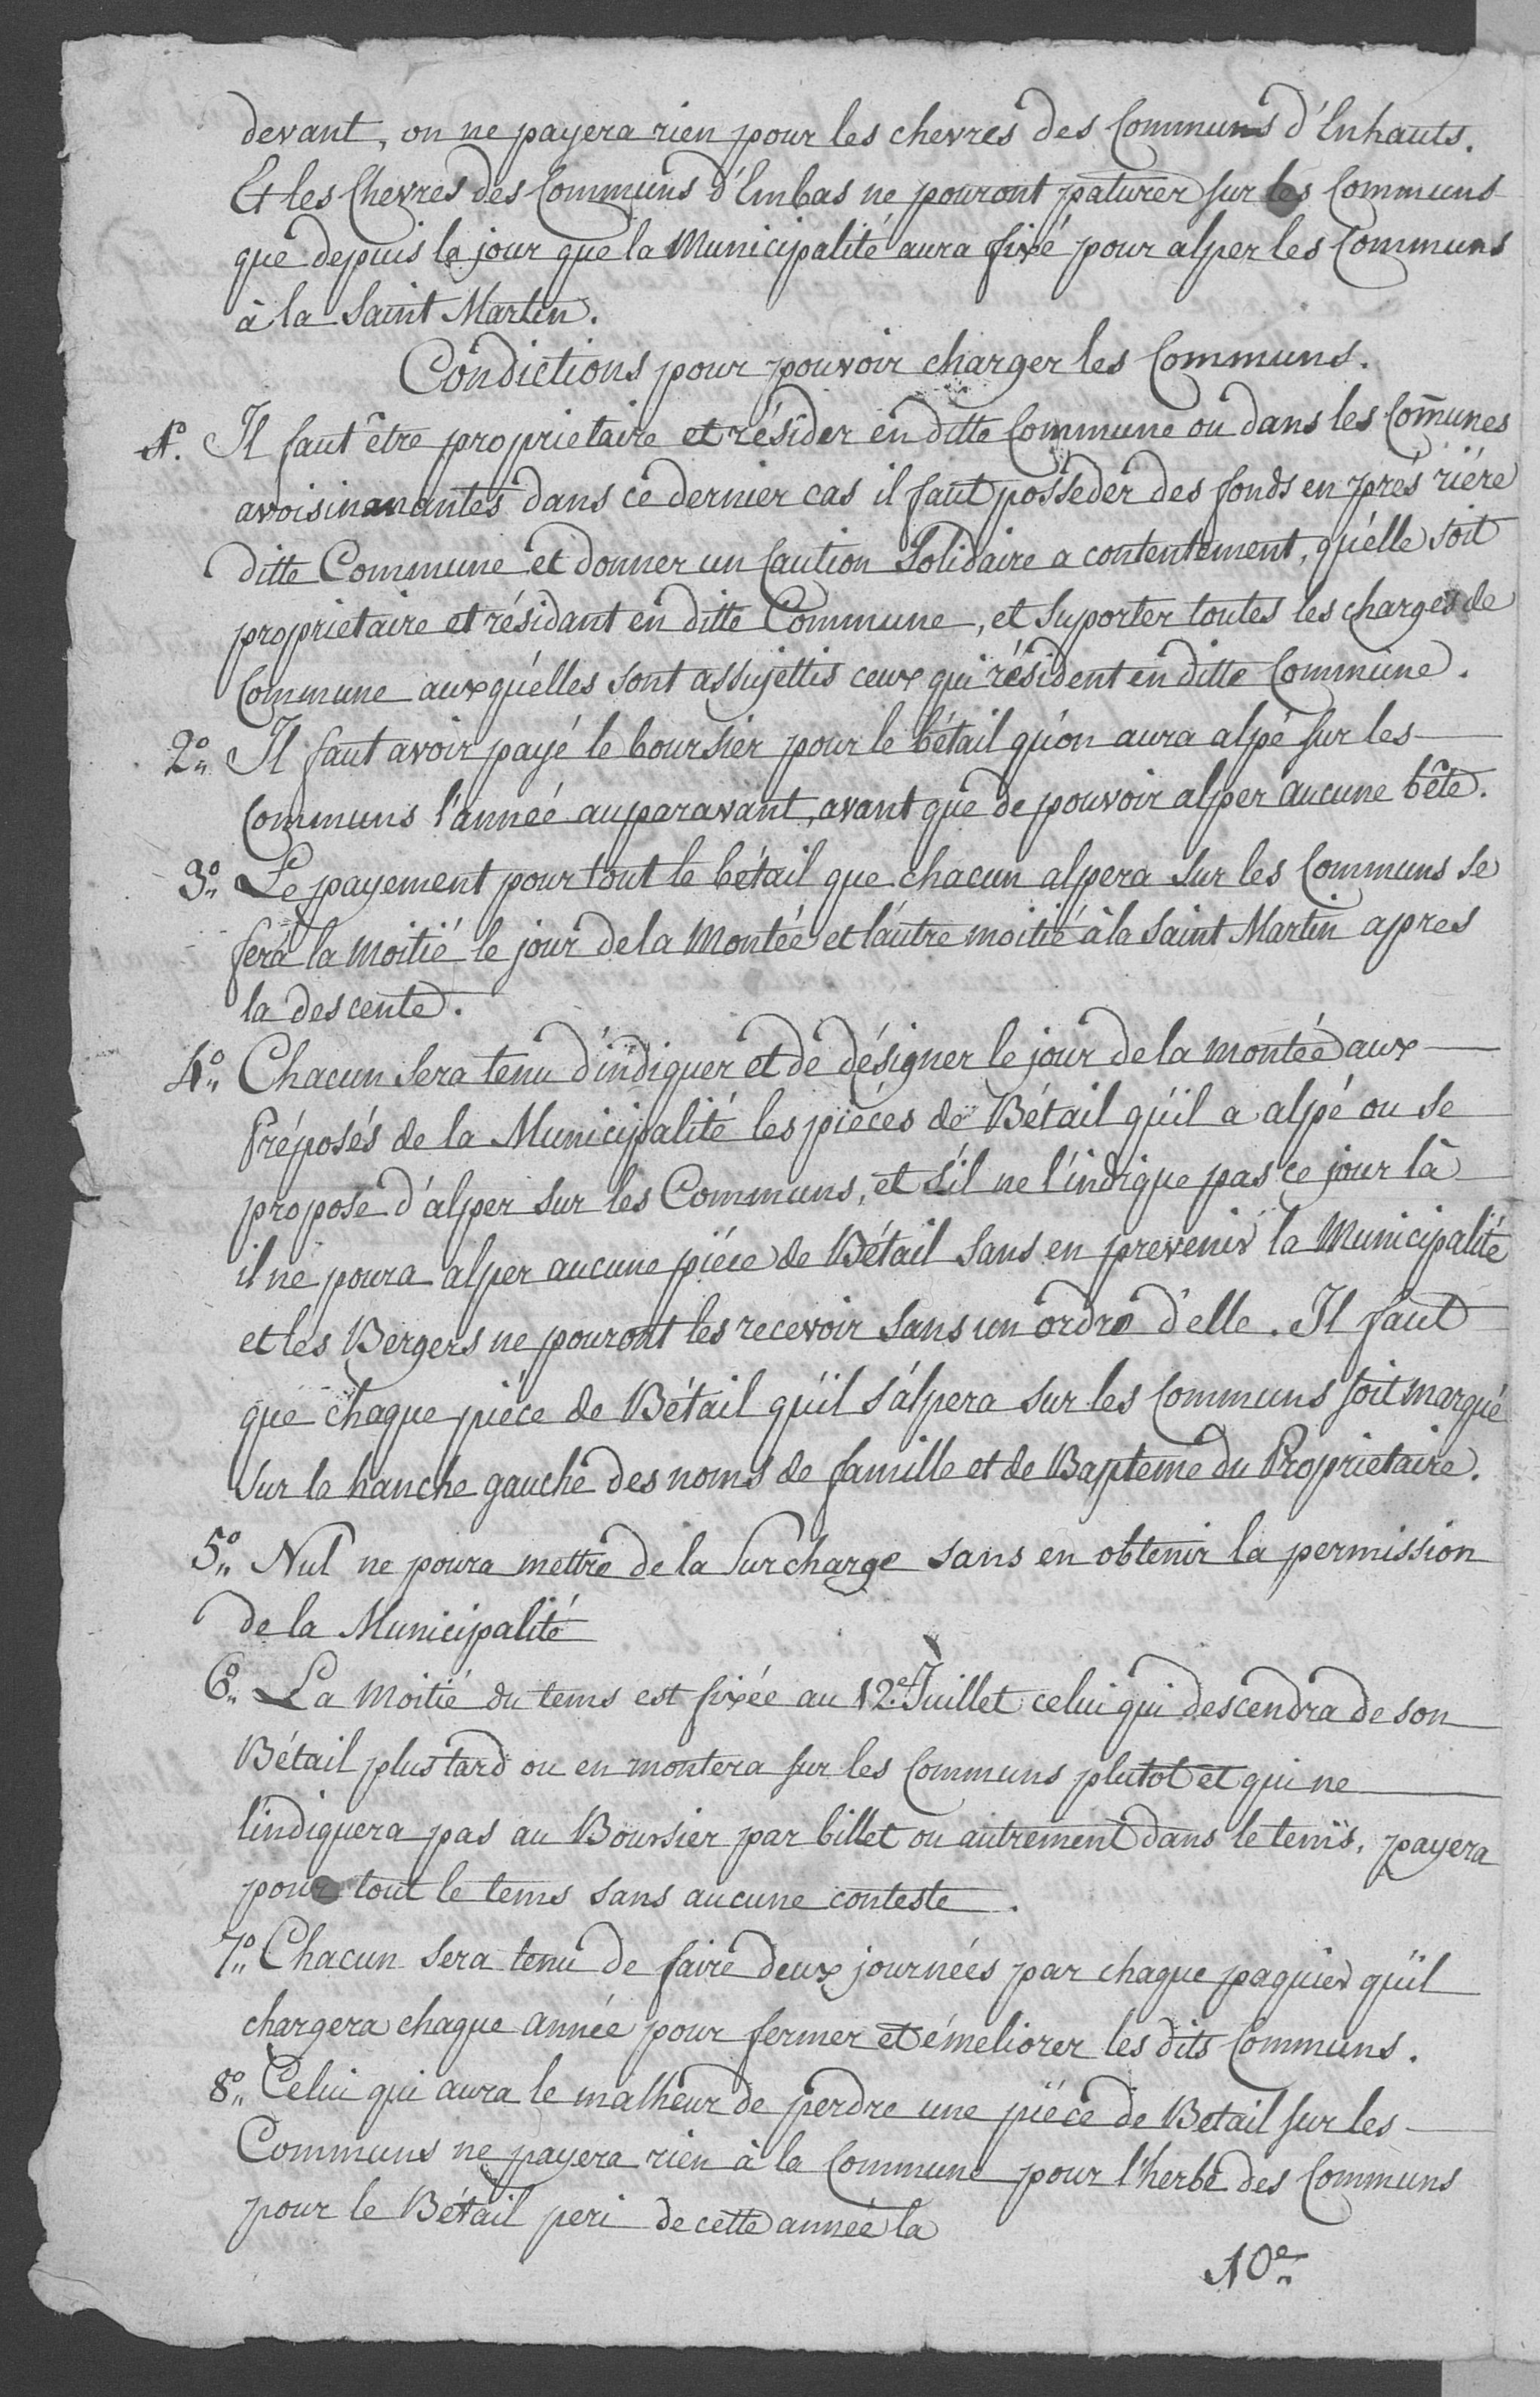 devant, on ne payera rien pour les chevres des Communs d'Enhauts.
Et les Chevres des Communs d'Embas ne pouront paturer sur les Communs
que depuis le jour que la Municipalité aura fixé pour alper les Communs
à la Saint Martin.
Condictions pour pouvoir charger les Communs.
1º. Il faut être proprietaire et résider en ditte Commune ou dans les Com̄unes
avoisinanantes dans ce dernier cas il faut posseder des fonds en prés riére
ditte Commune et donner un Caution Solidaire a contentement, qu'elle soit
proprietaire et résidant en ditte Commune, et Suporter toutes les charges de
Commune auxquélles sont assujettis ceux qui résident en ditte Commune.
2º. Il faut avoir payé le boursier pour le bétail qu'on aura alpé sur les
Communs l'année auparavant, avant que de pouvoir alper aucune bête.
3º. Le payement pour tout le bétail que chacun alpera sur les Communs se
fera la moitié le jour de la Montée et l'autre moitié à la Saint Martin apres
la descente.
4º. Chacun sera tenu d'indiquer et de désigner le jour de la montée aux
Préposés de la Municipalité les piéces de Bétail qu'il a alpé ou se
propose d'alper sur les Communs, et s'il ne l'indique pas ce jour là
il ne poura alper aucune piéce de Bétail sans en prevenir la Municipalité
et les Bergers ne pouront les recevoir sans un ordre d'elle. Il faut
que chaque piéce de Bétail qu'il s'alpera sur les Communs soit marqué
sur le hanche gauche des noms de famille et de Bapteme du Proprietaire.
5º. Nul ne poura mettre de la Surcharge sans en obtenir la permission
de la Municipalité
6º. La Moitié du tems est fixée au 12.e Juillet celui qui descendra de son
Bétail plus tard ou en montera sur les Communs plutot et qui ne
l'indiquera pas au Boursier par billet ou autrement dans le tems, payera
pour tout le tems sans aucune conteste.
7º. Chacun sera tenu de faire deux journées par chaque paquier qu'il
chargera chaque année pour fermer et émeliorer les dits Communs.
8º. Celui qui aura le malheur de perdre une piéce de Betail sur les
Communs ne payera rien à la Commune pour l'herbe des Communs
pour le Bétail peri de cette année la
10e.